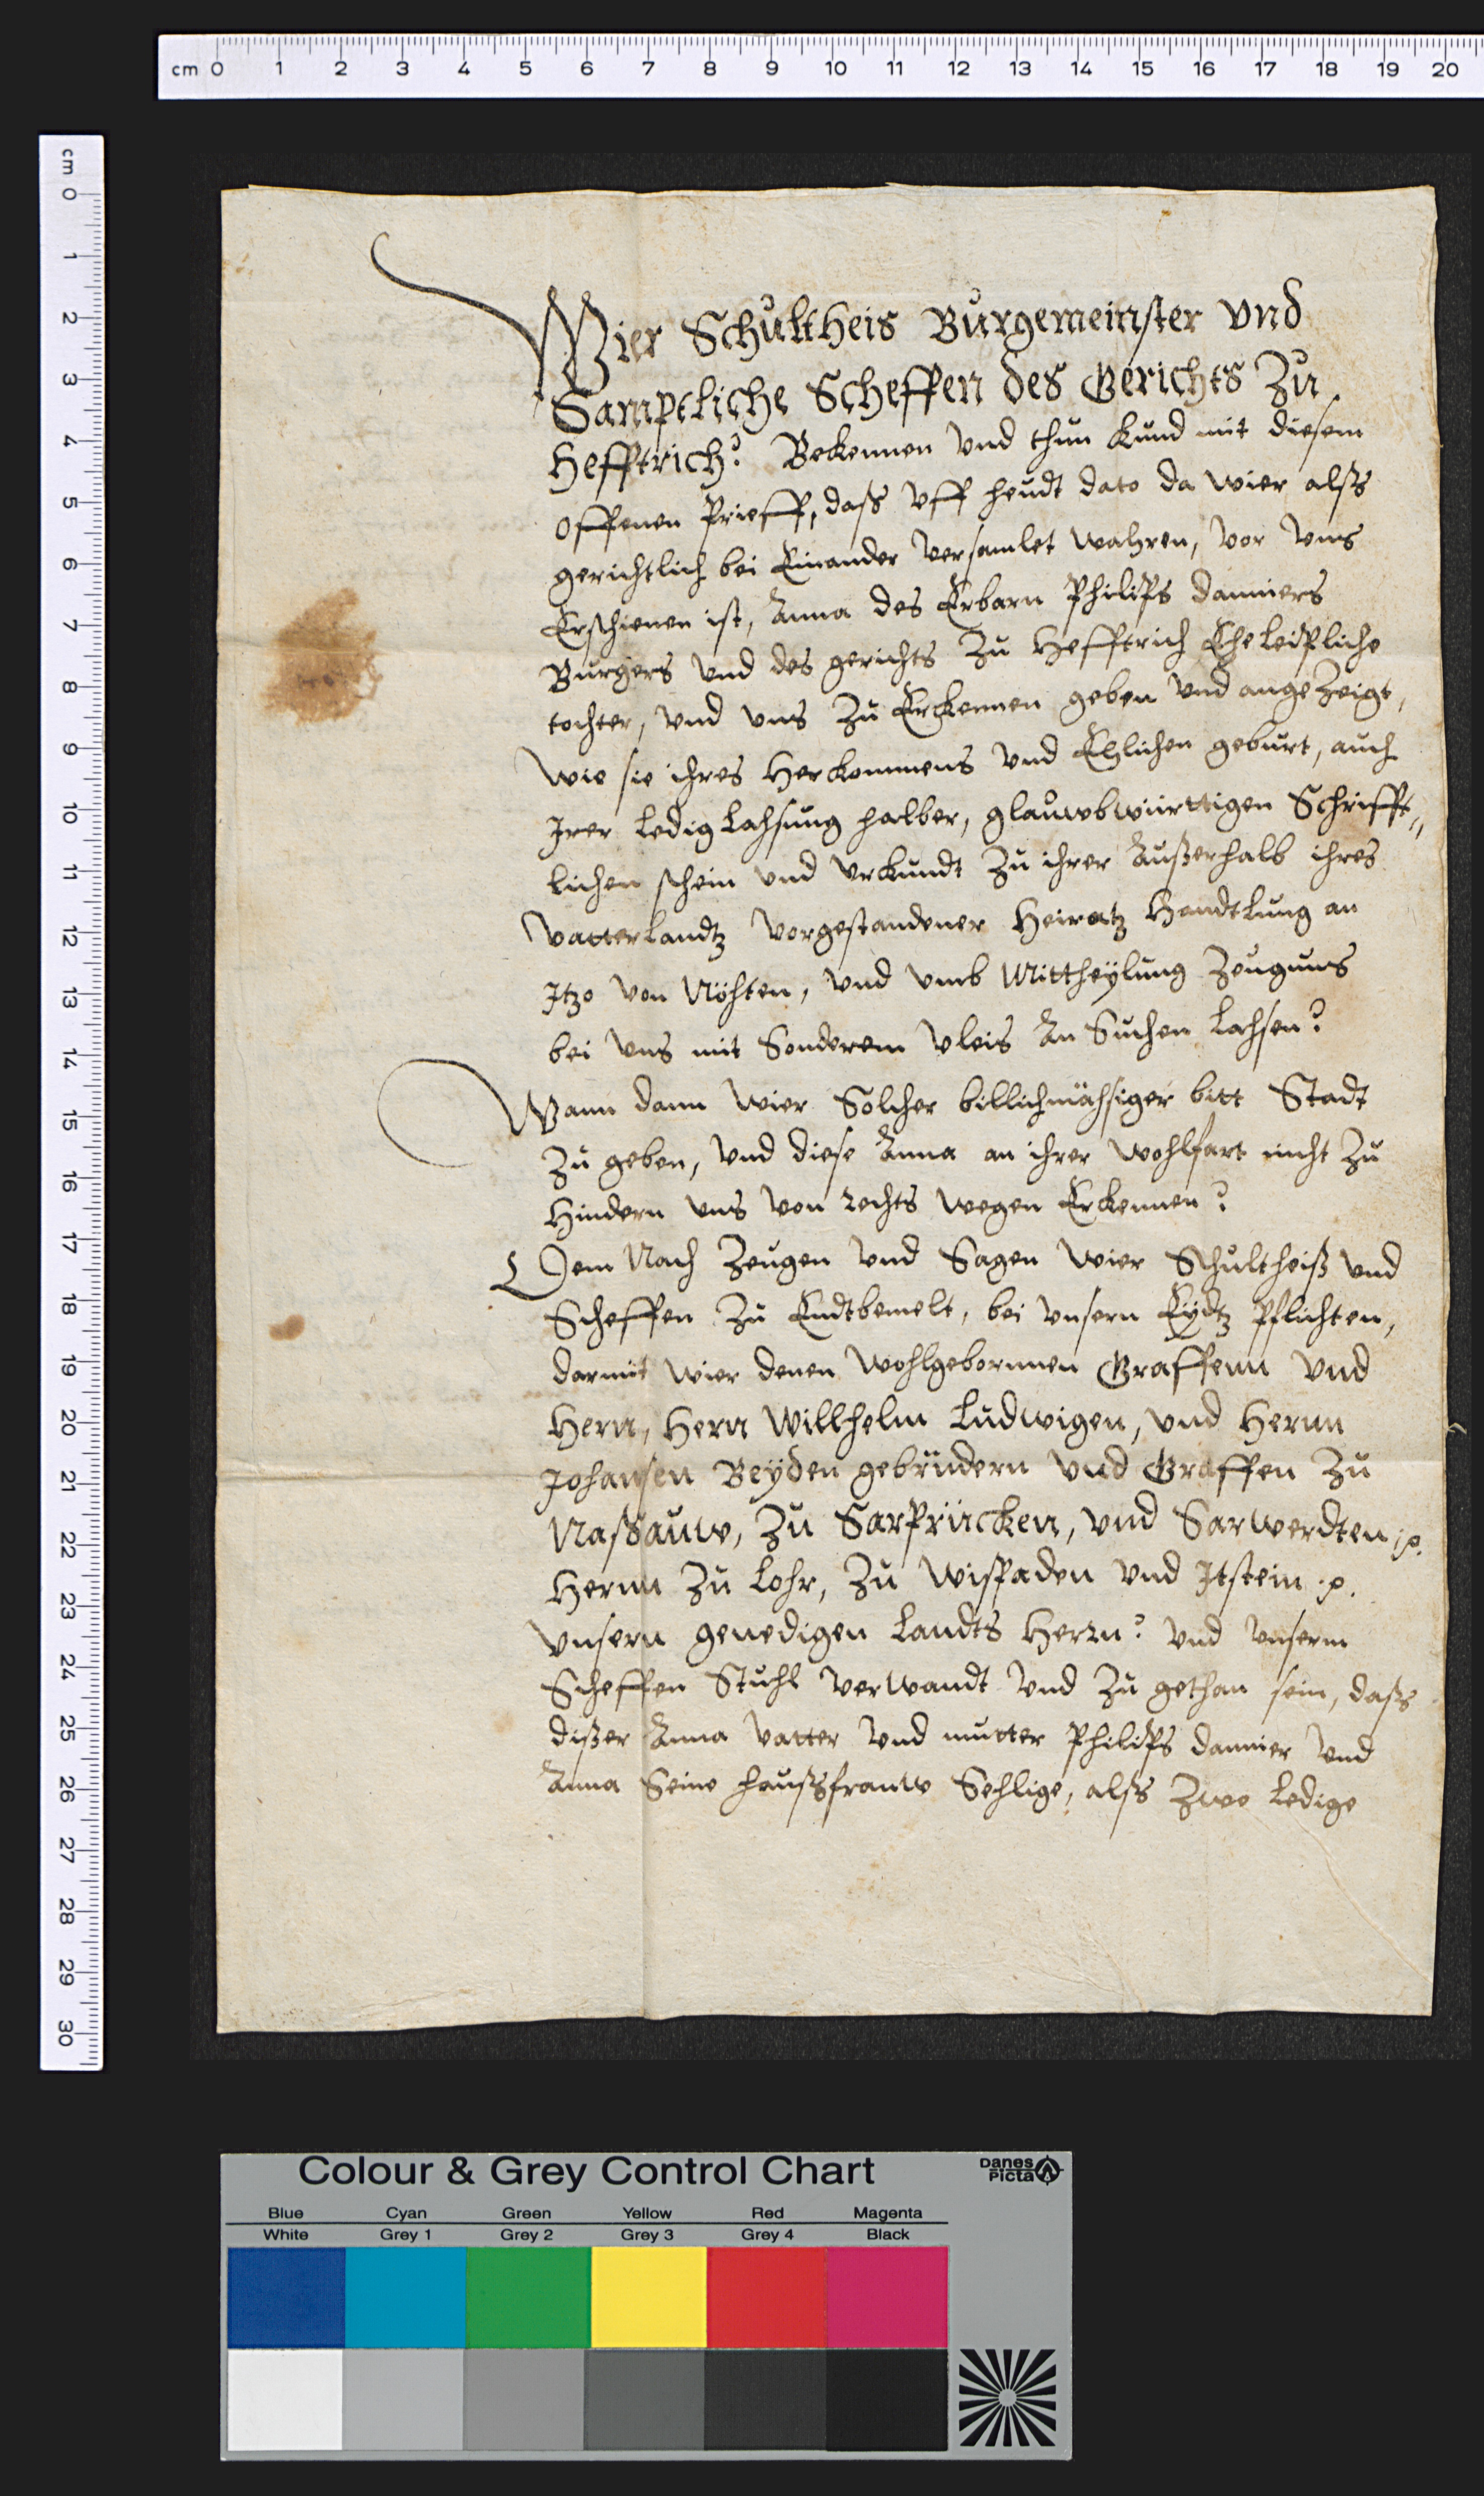 cm 0 1 2 3 4 5 6 7 8 9 10 11 12 13 14 15 16 17 18 19 20
cm 0 1 2 3 4 5 6 7 8 9 10 11 12 13 14 15 16 17 18 19 20 21 22 23 24 25 26 27 28 29 30
Wier Schultheis Burgemeinster Vnd
Samptliche Scheffen des Gerichts Zu
Hefftrich? Bekennen Vnd thun kund mit diesem
offenen Prieff, daß Vff heudt dato da wier alß
gerichtlich bei Einander Versamlet wahren, Vor Vns
Erschienen ist, Anna des Erbarn Philips danniers
Burgers Vnd des gerichts Zu Hefftrich Ehe leipliche
tochter, Vnd Vns Zu Erkennen geben Vnd angeZeigt,
wie sie ihres Herkommens Vnd Ehlichen geburt, auch
Irer Ledig Lahsung halber, glauwbwürttigen Schrifft„
lichen schein Vnd Vrkundt Zu ihrer Außerhalb ihres
Vatterlandtz Vorgestandener Heiratz Handtlung an
Itzo Von Nöhten, Vnd Vmb Mittheÿlung Zeugnuß
bei Vns mit Sonderem Vleis An Suchen Lahsen?
Wann dann wier Solcher billichmähsiger bitt Stadt
Zu geben, Vnd diese Anna an ihrer wohlfart nicht Zu
Hindern Vns Von rechts wegen Erkennen?
Dem Nach Zeugen Vnd Sagen wier Schultheiß Vnd
Scheffen Zu Endtbemelt, bei Vnsern Eÿdtz Pflichten,
darmit wier denen wohlgebornnen Graffenn Vnd
Hern, Hern Willhelm Ludwigen, Vnd Hernn
Johansen Beÿden gebrüdern Vnd Graffen Zu
Naßauw, Zu Sarprücken, Vnd Sarwerdten p.
Hernn Zu Lohr, Zu Wispaden Vnd Itstein p.
Vnsern genedigen Landts Herrn? Vnd Vnserm
Scheffen Stuhl Verwandt Vnd Zu gethan sein, daß
dißer Anna Vatter Vnd mutter Philips dannier Vnd
Anna Seine haußfrauw Sehlige, alß Zwo Ledige
Colour & Grey Control Chart
Danes Picta
Blue Cyan Green Yellow Red Magenta
White Grey 1 Grey 2 Grey 3 Grey 4 Black